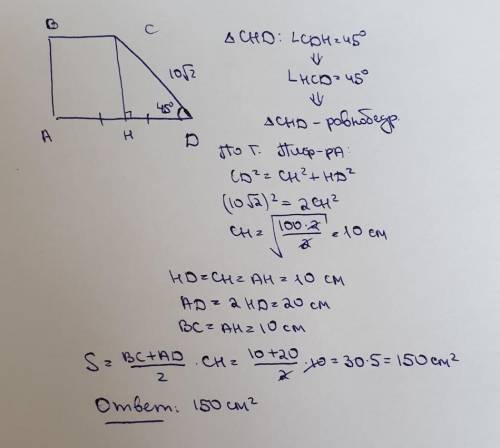 B C
10√2
45°
A H D
ΔCHD: ∠CDH=45°
⇓
∠HCD=45°
⇓
ΔCHD - равнобедр.
По т. Пиф-ра:
CD²=CH²+HD²
(10√2)²=2CH²
CH=√(100·2/2)=10 см
HD=CH=AH=10 см
AD=2HD=20 см
BC=AH=10 см
S=(BC+AD)/2·CH=(10+20)/2·10=30·5=150 см²
Ответ: 150 см²